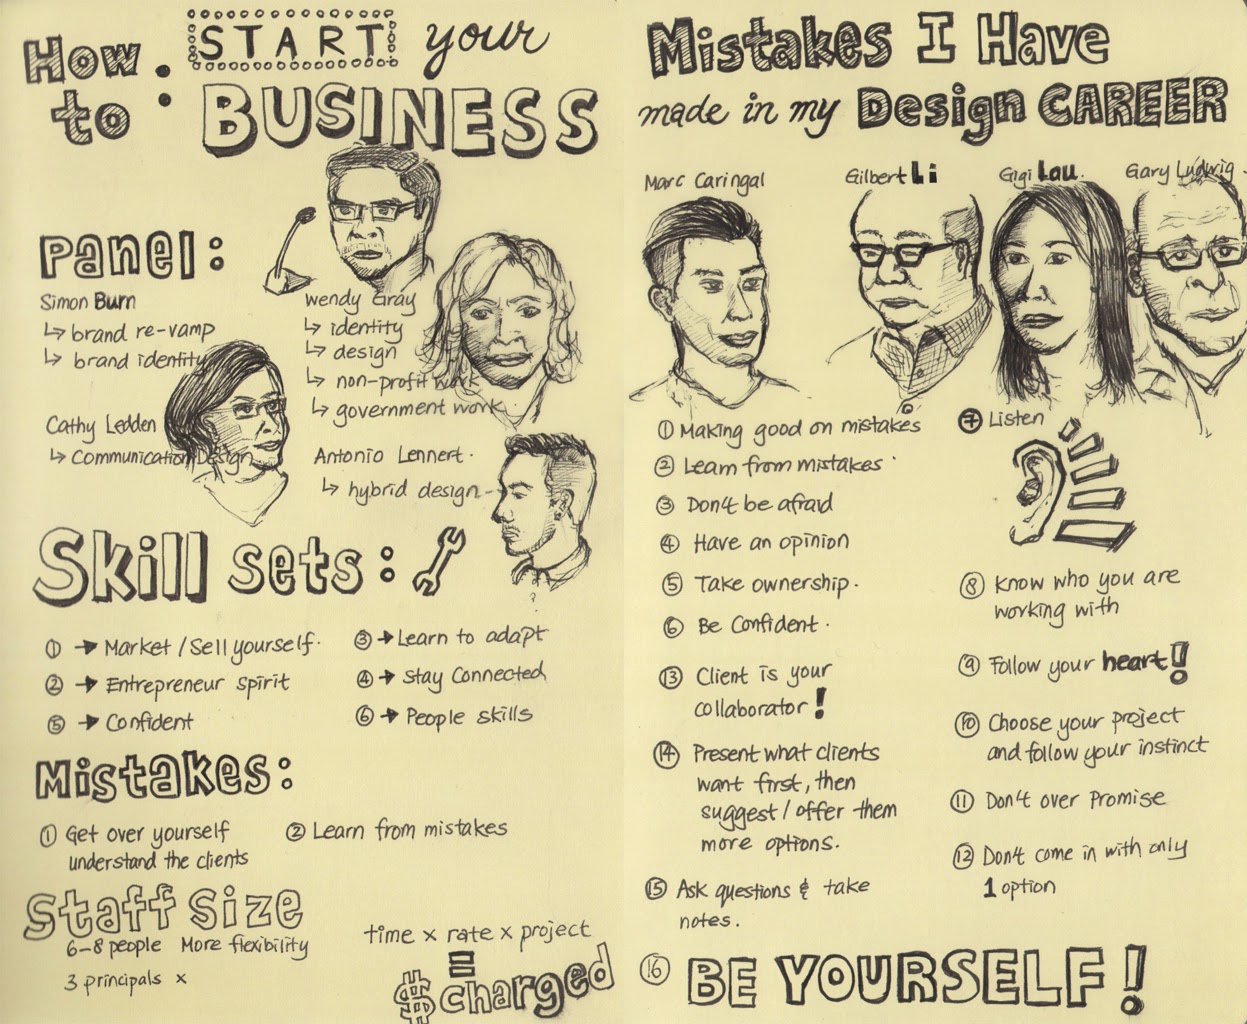 How to: START your
BUSINESS
Panel:
Simon Burn
↳ brand re-vamp
↳ brand identity
Wendy Gray
↳ identity
↳ design
↳ non-profit work
↳ government work
Cathy Ledden
↳ Communication Design
Antonio Lennert.
↳ hybrid design
Skill sets:
① → Market / Sell yourself.
② → Entrepreneur spirit
⑤ → Confident
③ → Learn to adapt
④ → Stay Connected
⑥ → People skills
Mistakes:
① Get over yourself
understand the clients
② Learn from mistakes
Staff Size
6-8 people More flexibility
3 principals x
time x rate x project
=
$ charged
Mistakes I Have
made in my Design CAREER
Marc Caringal
Gilbert Li
Gigi Lau.
Gary Ludwig
① Making good on mistakes
② Learn from mistakes
③ Don't be afraid
④ Have an opinion
⑤ Take ownership.
⑥ Be Confident.
⑦ Listen
⑧ Know who you are
working with
⑨ Follow your heart!
⑩ Choose your project
and follow your instinct
⑪ Don't over Promise
⑫ Don't come in with only
1 option
⑬ Client is your
collaborator!
⑭ Present what clients
want first, then
suggest / offer them
more options.
⑮ Ask questions & take
notes.
⑯ BE YOURSELF!